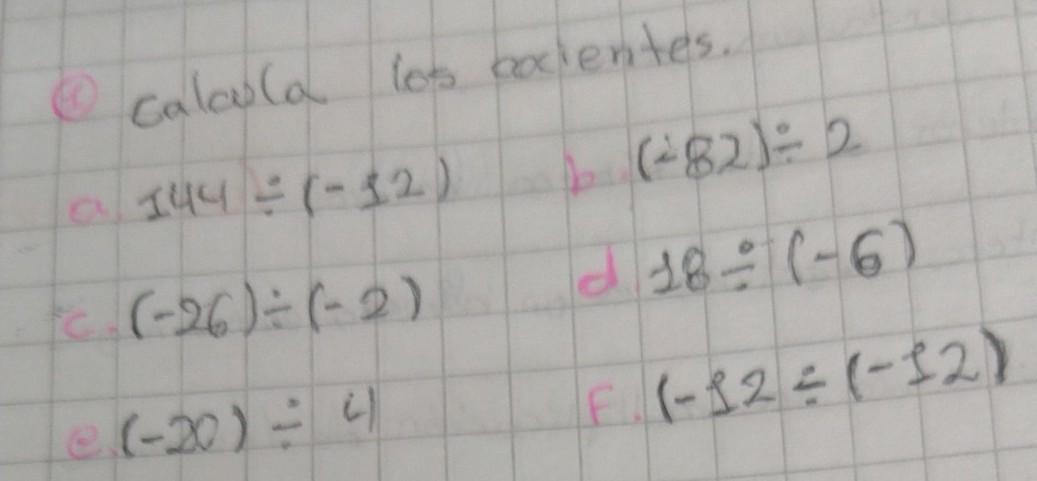 ④ calcula los cocientes.
a. 144 ÷ (-12) b. (-82) ÷ 2
c. (-26) ÷ (-2) d. 18 ÷ (-6)
e. (-20) ÷ 4 F. (-12 ÷ (-12)